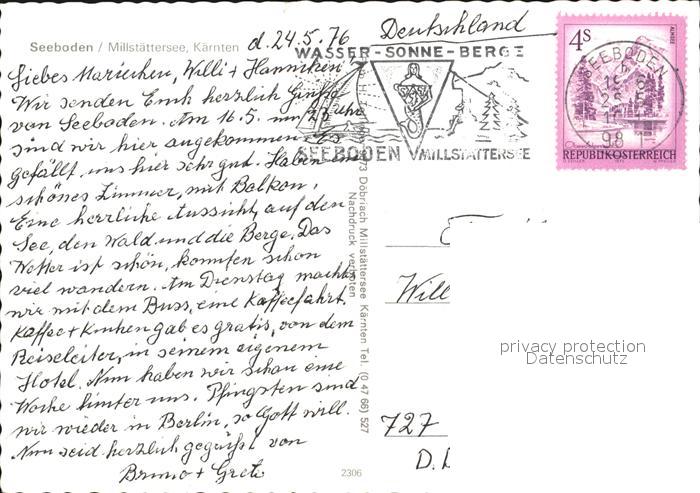 Seeboden / Millstättersee, Kärnten
d. 24.5.76
Deutschland
Liebes Mariechen, Willi + Hannchen
Wir senden Euch herzlich Grüße
von Seeboden. Am 16.5. um 23 Uhr
sind wir hier angekommen. Es
gefällt uns hier sehr gut. Haben ein
schönes Zimmer, mit Balkon,
Eine herrliche Aussicht, auf den
See, den Wald und die Berge. Das
Wetter ist schön, konnten schon
viel wandern. Am Dienstag machten
wir mit dem Buss, eine Kaffeefahrt,
Kaffee + Kuchen gab es gratis, von dem
Reiseleiter, in seinem eigenem
Hotel. Nun haben wir schon eine
Woche hinter uns. Pfingsten sind
wir wieder in Berlin, so Gott will.
Nun seid herzlich gegrüßt von
Bruno + Grete
WASSER-SONNE-BERGE
SEEBODEN MILLSTÄTTERSEE
4S
ALMSEE
REPUBLIK ÖSTERREICH
SEEBODEN
98
73 Döbriach Millstättersee Kärnten Tel. (0 47 66) 527
Nachdruck verboten
Will
727
D.
2306
privacy protection
Datenschutz